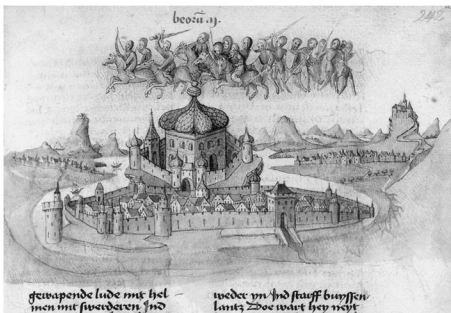 beoru̅ .ij.
242
gewapende lude mit hel-
men mit swerderen Ind
weder yn Ind starff buyssen
lantz Doe wart hey neyt